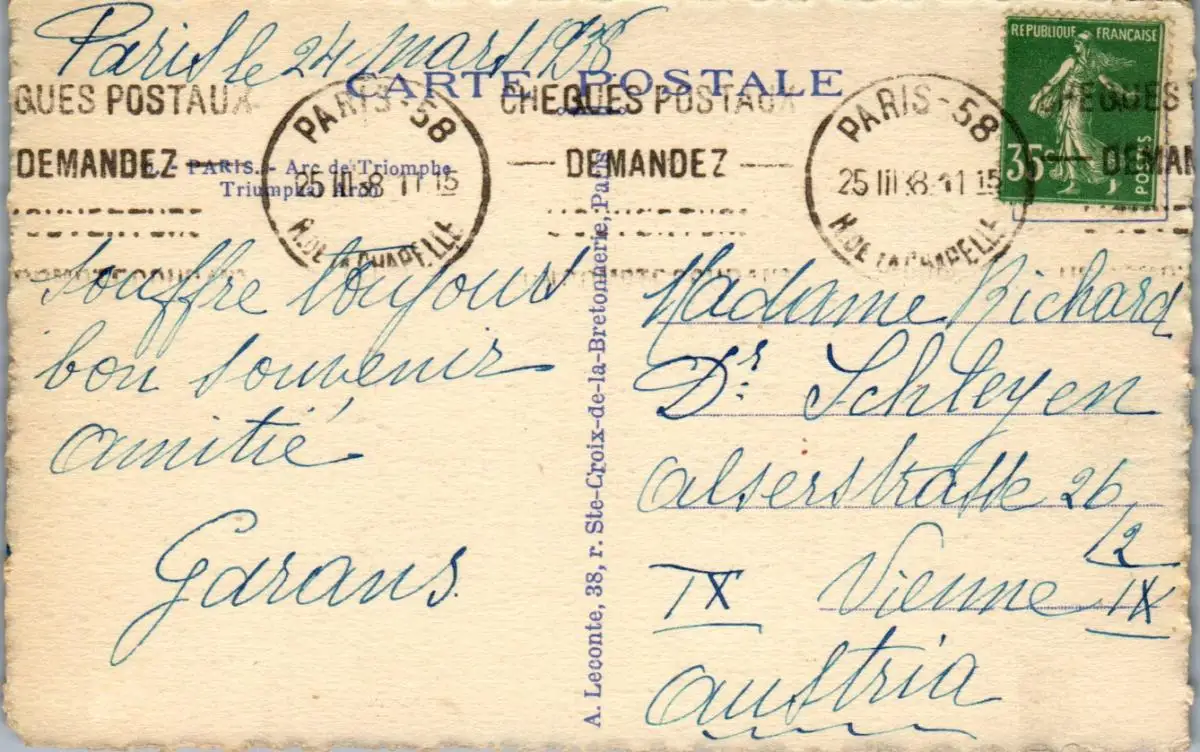 Paris le 24 mars 1938
CARTE POSTALE
REPUBLIQUE FRANÇAISE
35c
POSTES
QUES POSTAUX
CHEQUES POSTAUX
DEMANDEZ
DEMANDEZ
DEMAN
PARIS-58
25 III 38 11 15
R. DE LA CHAPELLE
PARIS-58
25 III 38 11 15
R. DE LA CHAPELLE
PARIS. - Arc de Triomphe
Triumphal Arch
souffre toujours
bon souvenir
amitié
Garans.
A. Leconte, 38, r. Ste-Croix-de-la-Bretonnerie, Paris
Madame Richard
Dr. Schleyen
Alserstrasse 26
/2
IX Vienne IX
Austria